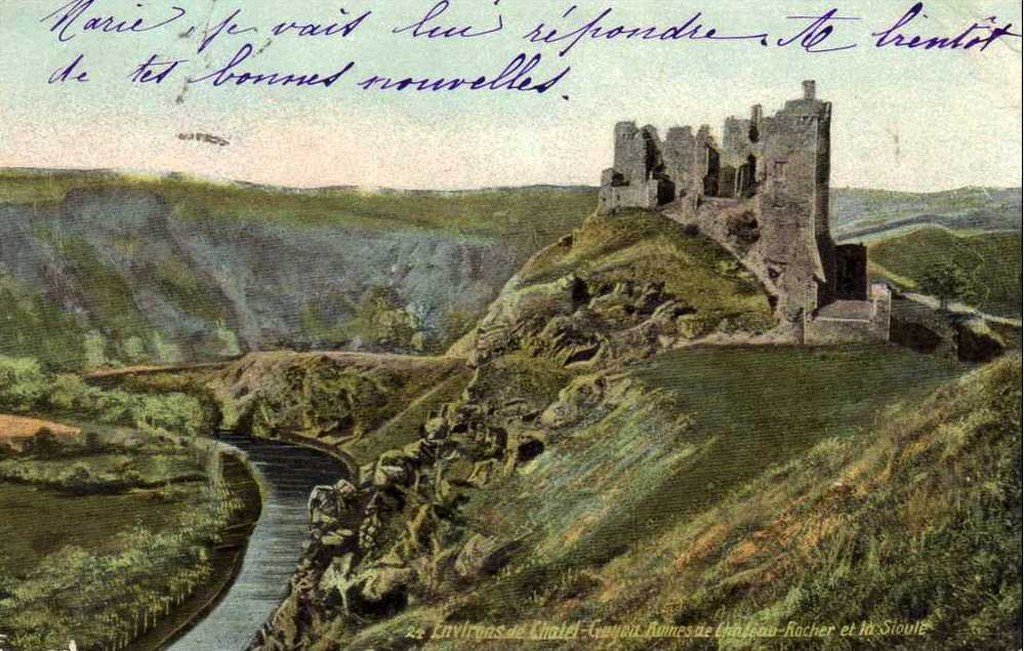 Marie je vais lui répondre. A bientôt
de tes bonnes nouvelles.
24 Environs de Chatel-Guyon Ruines de Chateau-Rocher et la Sioule